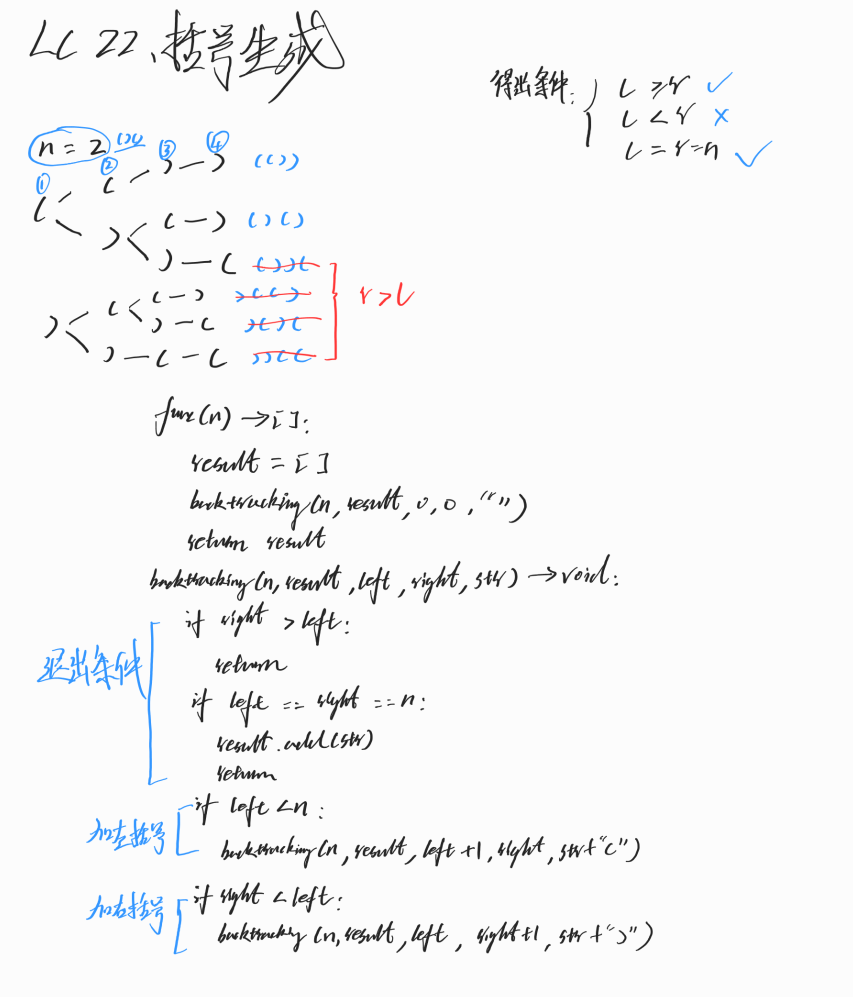 LC 22、括号生成
得出条件:
L ≥ r ✓
L < r ×
L = r = n ✓
n = 2
① ② ③ ④
( ( ) — ) (())
) ( — ) ()()
) — ( ())(
) ( ( — ) )(()
) — ( )()(
) — ( — ( ))((
r > L
func(n) → []:
result = []
backtracking(n, result, 0, 0, "")
return result
backtracking(n, result, left, right, str) → void:
退出条件
if right > left:
return
if left == right == n:
result.add(str)
return
加左括号
if left < n:
backtracking(n, result, left +1, right, str+"(")
加右括号
if right < left:
backtracking(n, result, left, right+1, str+")")